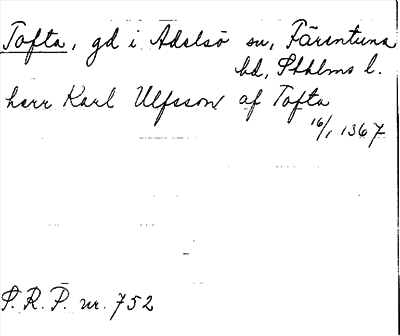 Tofta, gd i Adelsö sn, Färentuna
hd, Sthlms l.
herr Karl Ulfsson af Tofta
16/1 1367
S. R. P. nr. 752